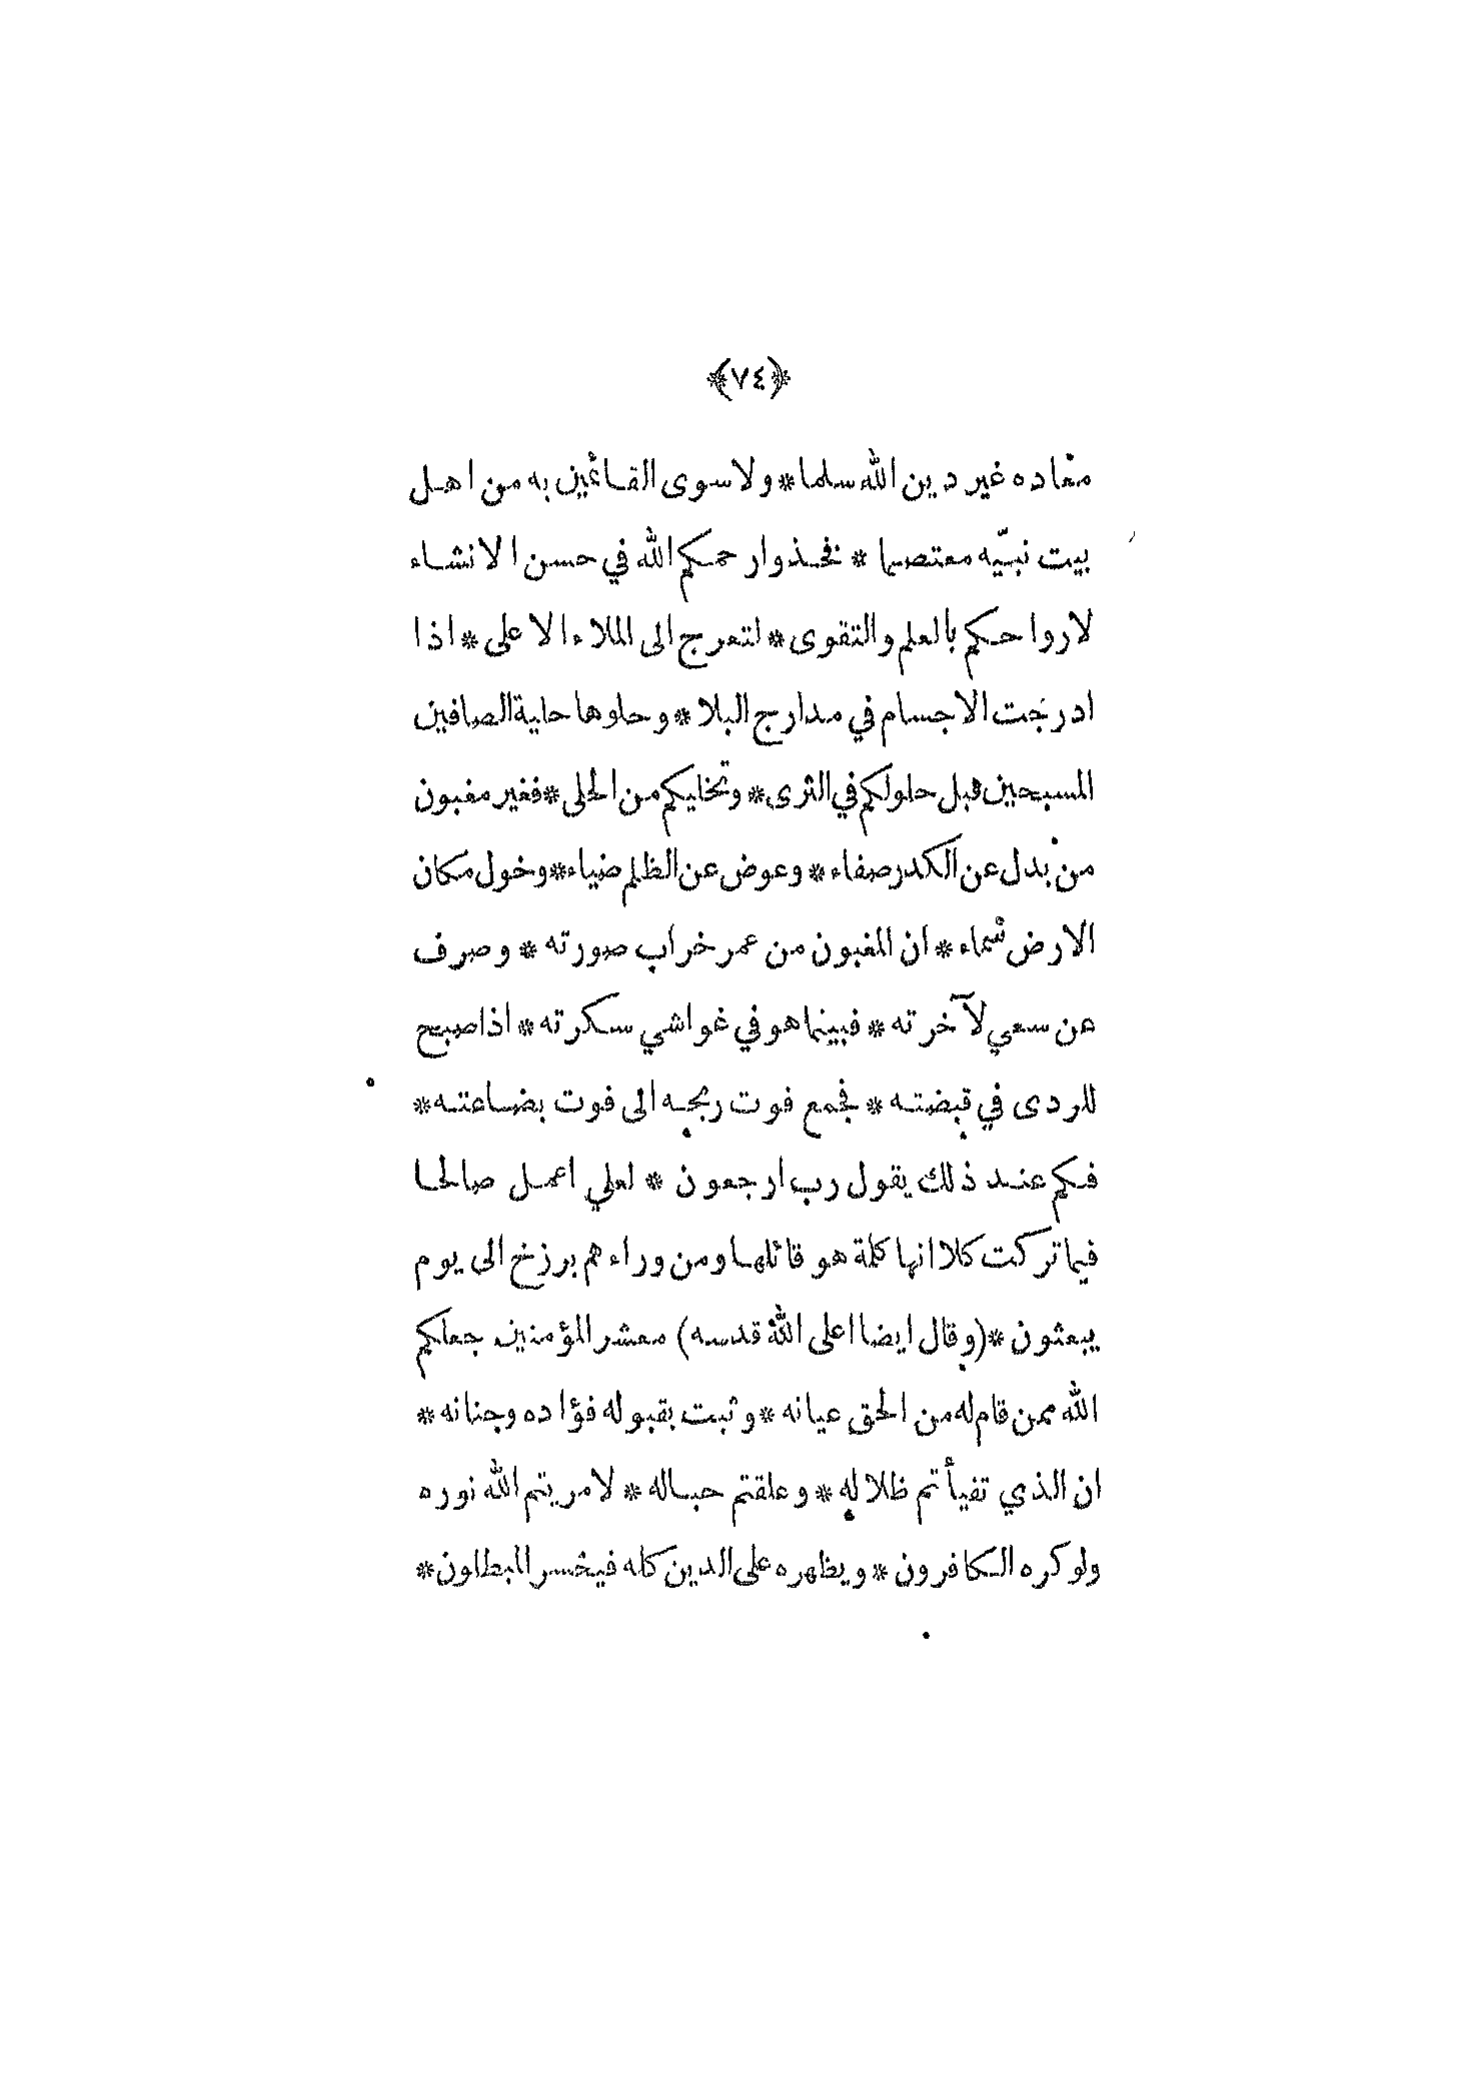 ﴿٧٤﴾
معاده غير دين الله سلما * ولا سوى القائمين به من اهل
بيت نبيّه معتصما * فخذوا رحمكم الله في حسن الانشاء
لارواحكم بالعلم والتقوى * لتعرج الى الملاء الاعلى * اذا
ادرجت الاجسام في مدارج البلا * وحلوها حلية الصافين
المسبحين قبل حلولكم في الثرى * وتخليكم من الحلى * فغير مغبون
من بدل عن الكدر صفاء * وعوض عن الظلم ضياء * وخول مكان
الارض سماء * ان المغبون من عمر خراب صورته * وصرف
عن سعي لآخرته * فبينما هو في غواشي سكرته * اذا صبح
للردى في قبضته * فجمع فوت ربحه الى فوت بضاعته *
فكم عند ذلك يقول رب ارجعون * لعلي اعمل صالحا
فيما تركت كلا انها كلمة هو قائلها ومن وراءهم برزخ الى يوم
يبعثون * (وقال ايضا اعلى الله قدسه) معشر المؤمنين جعلكم
الله ممن قام له من الحق عيانه * وثبت بقبوله فؤاده وجنانه *
ان الذي تفيأتم ظلاله * وعلقتم حباله * لامر يتم الله نوره
ولو كره الكافرون * ويظهره على الدين كله فيخسر المبطلون *